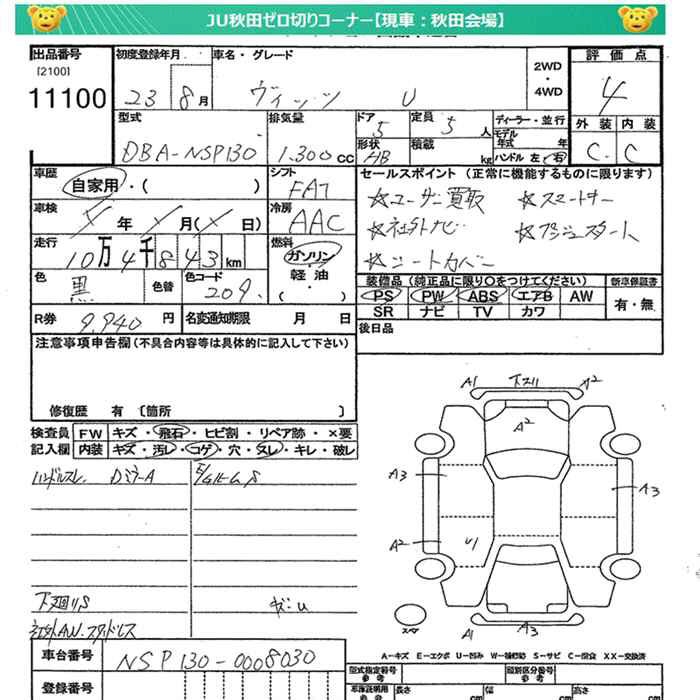 JU秋田ゼロ切りコーナー【現車：秋田会場】
出品番号 初度登録年月 車名・グレード 2WD・4WD 評価点
[2100]
11100 23年 8月 ヴィッツ U 4
型式 排気量 ドア 定員 ディーラー・並行 外装 内装
DBA-NSP130 1.300cc 5 5人 モデル年式 年 C C
形状 HB 積載 kg ハンドル 左・右
車歴 シフト セールスポイント (正常に機能するものに限ります)
自家用・( ) FAT ☆ユーザー買取 ☆スマートキー
車検 年 月( 日) 冷房 AAC ☆社外ナビ ☆プッシュスタート
走行 10万4千843km 燃料 ガソリン・軽油・( ) ☆シートカバー
色 黒 色替 色コード 209
装備品 (純正品に限り○をつけてください) 新車保証書
PS PW ABS エアB AW 有・無
SR ナビ TV カワ
R券 9,940円 名変通知期限 月 日 後日品
注意事項申告欄(不具合内容等は具体的に記入して下さい)
修復歴 有 〔箇所 〕
検査員 FW キズ・飛石・ヒビ割・リペア跡・×要
記入欄 内装 キズ・汚レ・コゲ・穴・スレ・キレ・破レ
ハンドルスレ DミラーA
下廻りS
社外AW.スタッドレス
A1 下スリ A2
A2
A3 A3
A2 U1
スペア
A1 A3
A-キズ E-エクボ U-凹み W-補修跡 S-サビ C-腐食 XX-交換済
車台番号 NSP130-0008030
登録番号
型式指定番号 参考 類別区分番号 参考
車庫証明用 参考 長さ cm 幅 cm 高さ cm